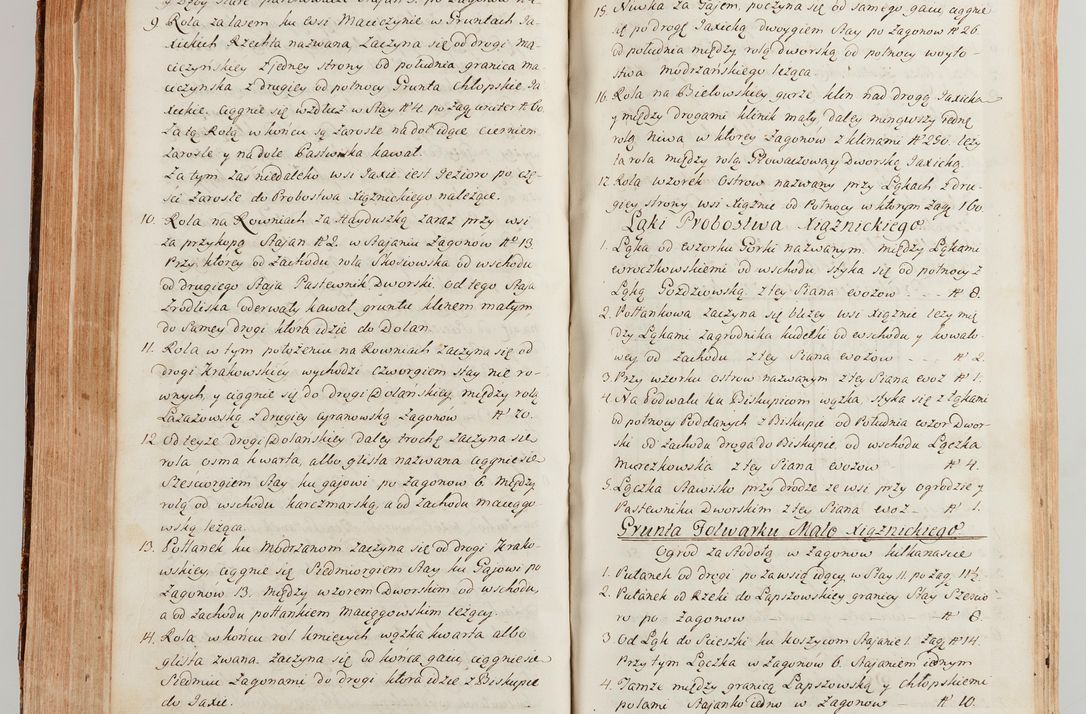 9 Rola za lasem ku wsi Macieczynie w Gruntach Ja-
xickich Rzechta nazwana, Zaczyna się od drogi ma-
cieczynskiey z jedney strony od południa granica ma-
cieczynska z drugiey od połnocy Grunta Chłopskie Ja-
xickie. ciągnie się wzdłuż w Stay № 4. po Zag.
Za tą Rolą w końcu są zarosłe na doł idące cierniem
zarosłe y na dole Pastwiska kawał.
Za tym zas niedaleko wsi Jaxic iest Jezioro po czę-
ści zarosłe do Probostwa Xiąznickiego nalezące.
10. Rola na Rowniach za Hayduszką zaraz przy wsi
za przykopą Staian № 2. w Staianiu Zagonow № 13
Przy ktorey od zachodu rola Skosiowska od wschodu
od drugiego Staia Pastewnik Dworski, od tego Staia
Zrodliska oderwały kawał gruntu klinem małym
do Samey drogi ktora idzie do Dolan.
11. Rola w tym położeniu na Rowniach zaczyna się od
drogi Krakowskiey wychodzi czworgiem stay nie ro-
wnych, y ciągnie się do drogi Dolańskiey, między rolą
Łazazowską z drugiey cyranowską Zagonow № 20.
12. Od teyze drogi Dolanskiey daley trochę zaczyna sie
rola osma kwarta, albo glista nazwana ciągnie sie
Szesciorgiem Stay ku gajowi po Zagonow 6. między
rolą od wschodu karczmarską, a od zachodu maciągo
wską leząca.
13. Połłanek ku Modrzanom zaczyna się od drogi Krako-
wskiey, ciągnie się Siedmiorgiem Stay ku Gajowi po
Zagonow 13. między wzorem Dworskim od wschodu,
a od zachodu połłankiem maciągowskim lezący.
14. Rola w końcu rol kmiecych wązka kwarta albo
glista zwana. Zaczyna się od końca gaiu, ciągnie sie
Siedmiu Zagonami do drogi ktora idzie z Biskupic
do Jaxic.
15. Niwka za Gajem, poczyna się od samego gaiu, ciągnie
się po drogę Jaxicką dwoygiem Stay po Zagonow № 26.
od południa między rolą Dworską od połnocy woyto-
stwa modrzańskiego leząca
16. Rola na Bielowskiey gurze klin nad drogą Jaxicką
y między drogami klinik mały, daley minąwszy Jedną
rolą niwa w ktorey Zagonow z klinami № 290. lezy
ta rola między rolą Głowaczową y Dworską Jaxicką.
17. Rola wzorek Ostrow nazwany przy Łąkach z dru-
giey strony wsi Xiąznic od Połnocy w ktorym zagą 160
Łąki Probostwa Xiąznickiego.
1. Łąka od wzorku Gorki nazwanym między Łąkami
wroczkowskiemi od wschodu styka się od połnocy z
Łąką Gozdziowską z tey Siana wozow - - - № 8.
2. Połłankowa zaczyna się blizey wsi Xiąznic lezy mię
dzy Łąkami zagrodnika kudełki od wschodu y kowalo-
wey od zachodu z tey Siana wozow - - - № 2.
3. Przy wzorku ostrow nazwanym z tey Siana woz № 1.
4. Na Podwalu ku Biskupicom wązka, styka się z Łąkami
od połnocy Podełanych z Biskupic od Południa wzor Dwor-
ski od zachodu droga do Biskupic, od wschodu Łączka
Mureczkowska z tey Siana wozow - № 4.
5. Łączka Stawisko przy drodze ze wsi przy ogrodzie y
Pastewniku Dworskim z tey Siana woz - № 1.
Grunta Folwarku Mało Xiąznickiego
Ogrod za Stodołą w Zagonow kilkanascie
1. Pułanek od drogi po za wsią idący, w Stay 11. po Zag. 11½.
2. Pułanek od Rzeki do Łapszowskiey granicy Stay Szescio-
ro po Zagonow № 8.
3. Od Łąk do Scieszki ku Koszycom Staianie 1. Zag. № 14
Przy tym Łączka w Zagonow 6. Staianiem iednym
4. Tamze między granicą Łapszowską y chłopskiemi
polami Staianko iedno w Zagonow - № 10.